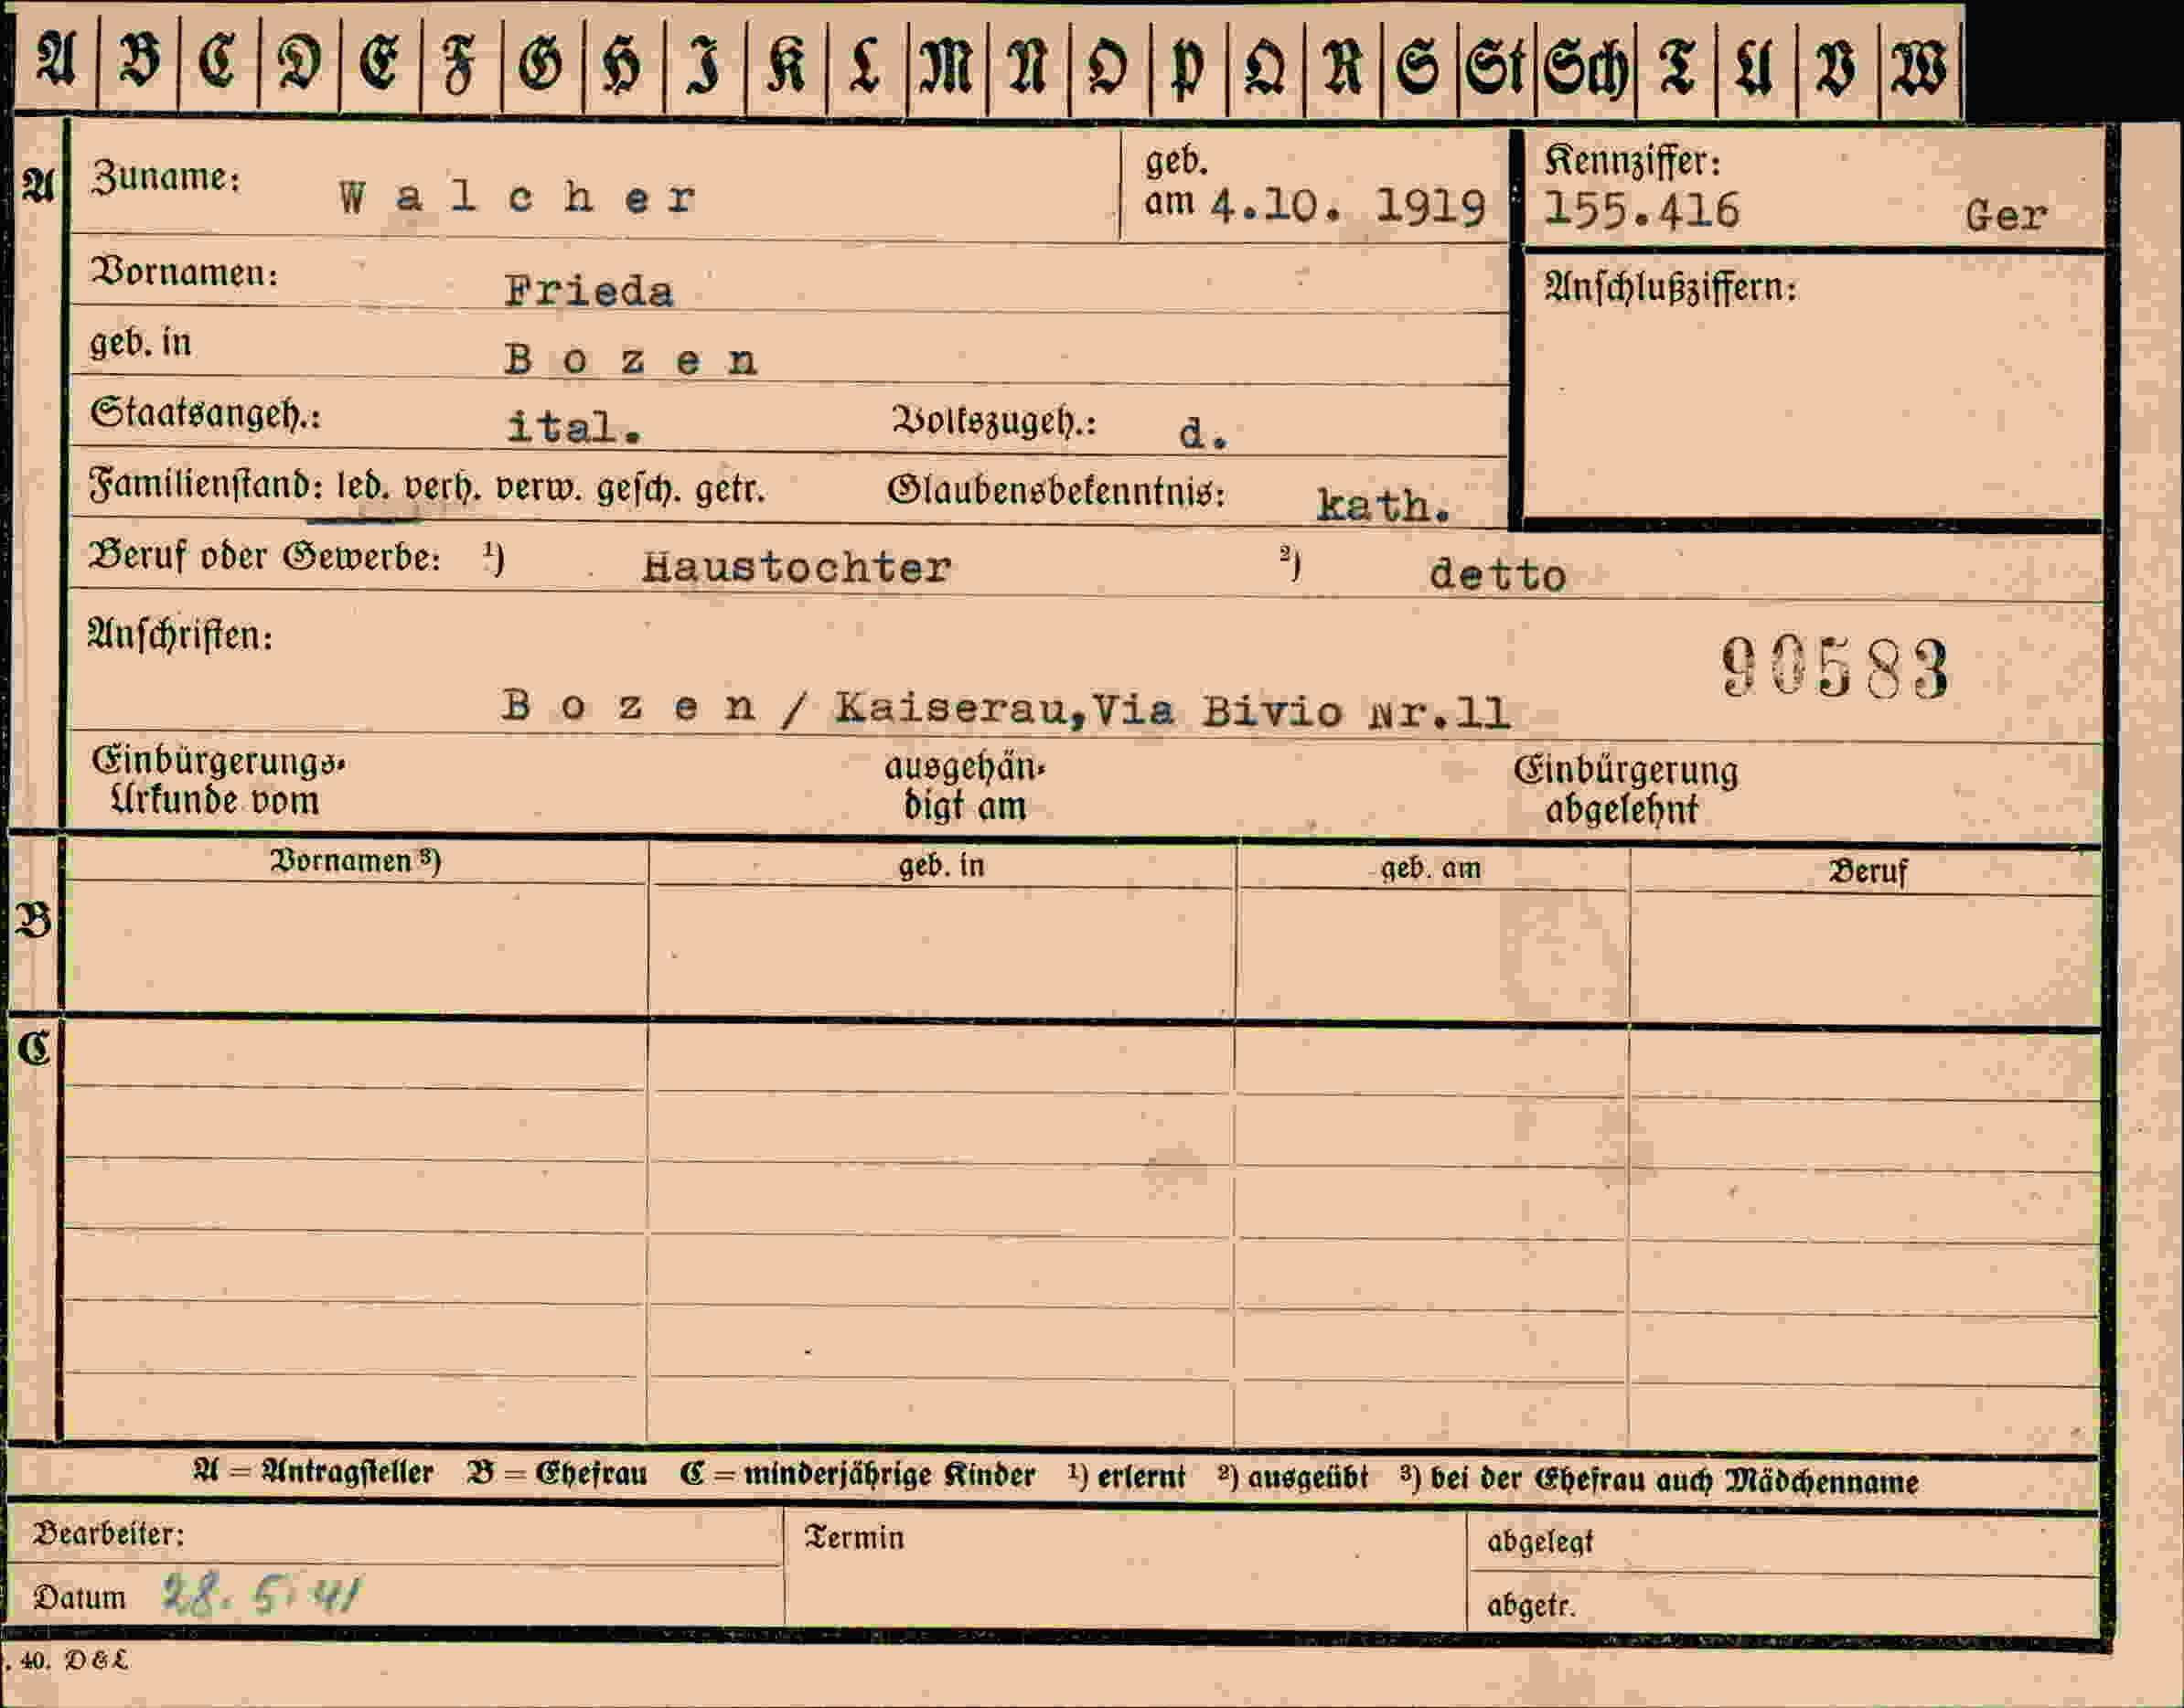 A B C D E F G H I K L M N O P Q R S St Sch T U V W
A Zuname: Walcher geb. am 4.10. 1919 Kennziffer: 155.416 Ger
Vornamen: Frieda Anschlußziffern:
geb. in Bozen
Staatsangeh.: ital. Volkszugeh.: d.
Familienstand: led. verh. verw. gesch. getr. Glaubensbekenntnis: kath.
Beruf oder Gewerbe: ¹) Haustochter ²) detto
Anschriften: 90583
Bozen / Kaiserau, Via Bivio Nr.11
Einbürgerungs- ausgehän- Einbürgerung
Urkunde vom digt am abgelehnt
Vornamen ³) geb. in geb. am Beruf
B
C
A = Antragsteller B = Ehefrau C = minderjährige Kinder ¹) erlernt ²) ausgeübt ³) bei der Ehefrau auch Mädchenname
Bearbeiter: Termin abgelegt
Datum 28. 5. 41 abgetr.
. 40. D & L